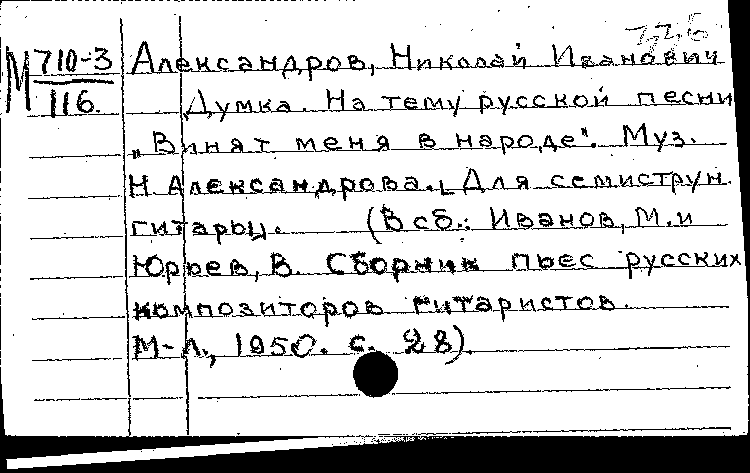 7,2,6
М 710-3 Александров, Николай Иванович
116. Думка. На тему русской песни
„Винят меня в народе". Муз.
Н. Александрова. Для семиструн.
гитары. (В сб.: Иванов, М. и
Юрьев, В. Сборник пьес русских
композиторов гитаристов.
М-Л., 1950. с. 28).